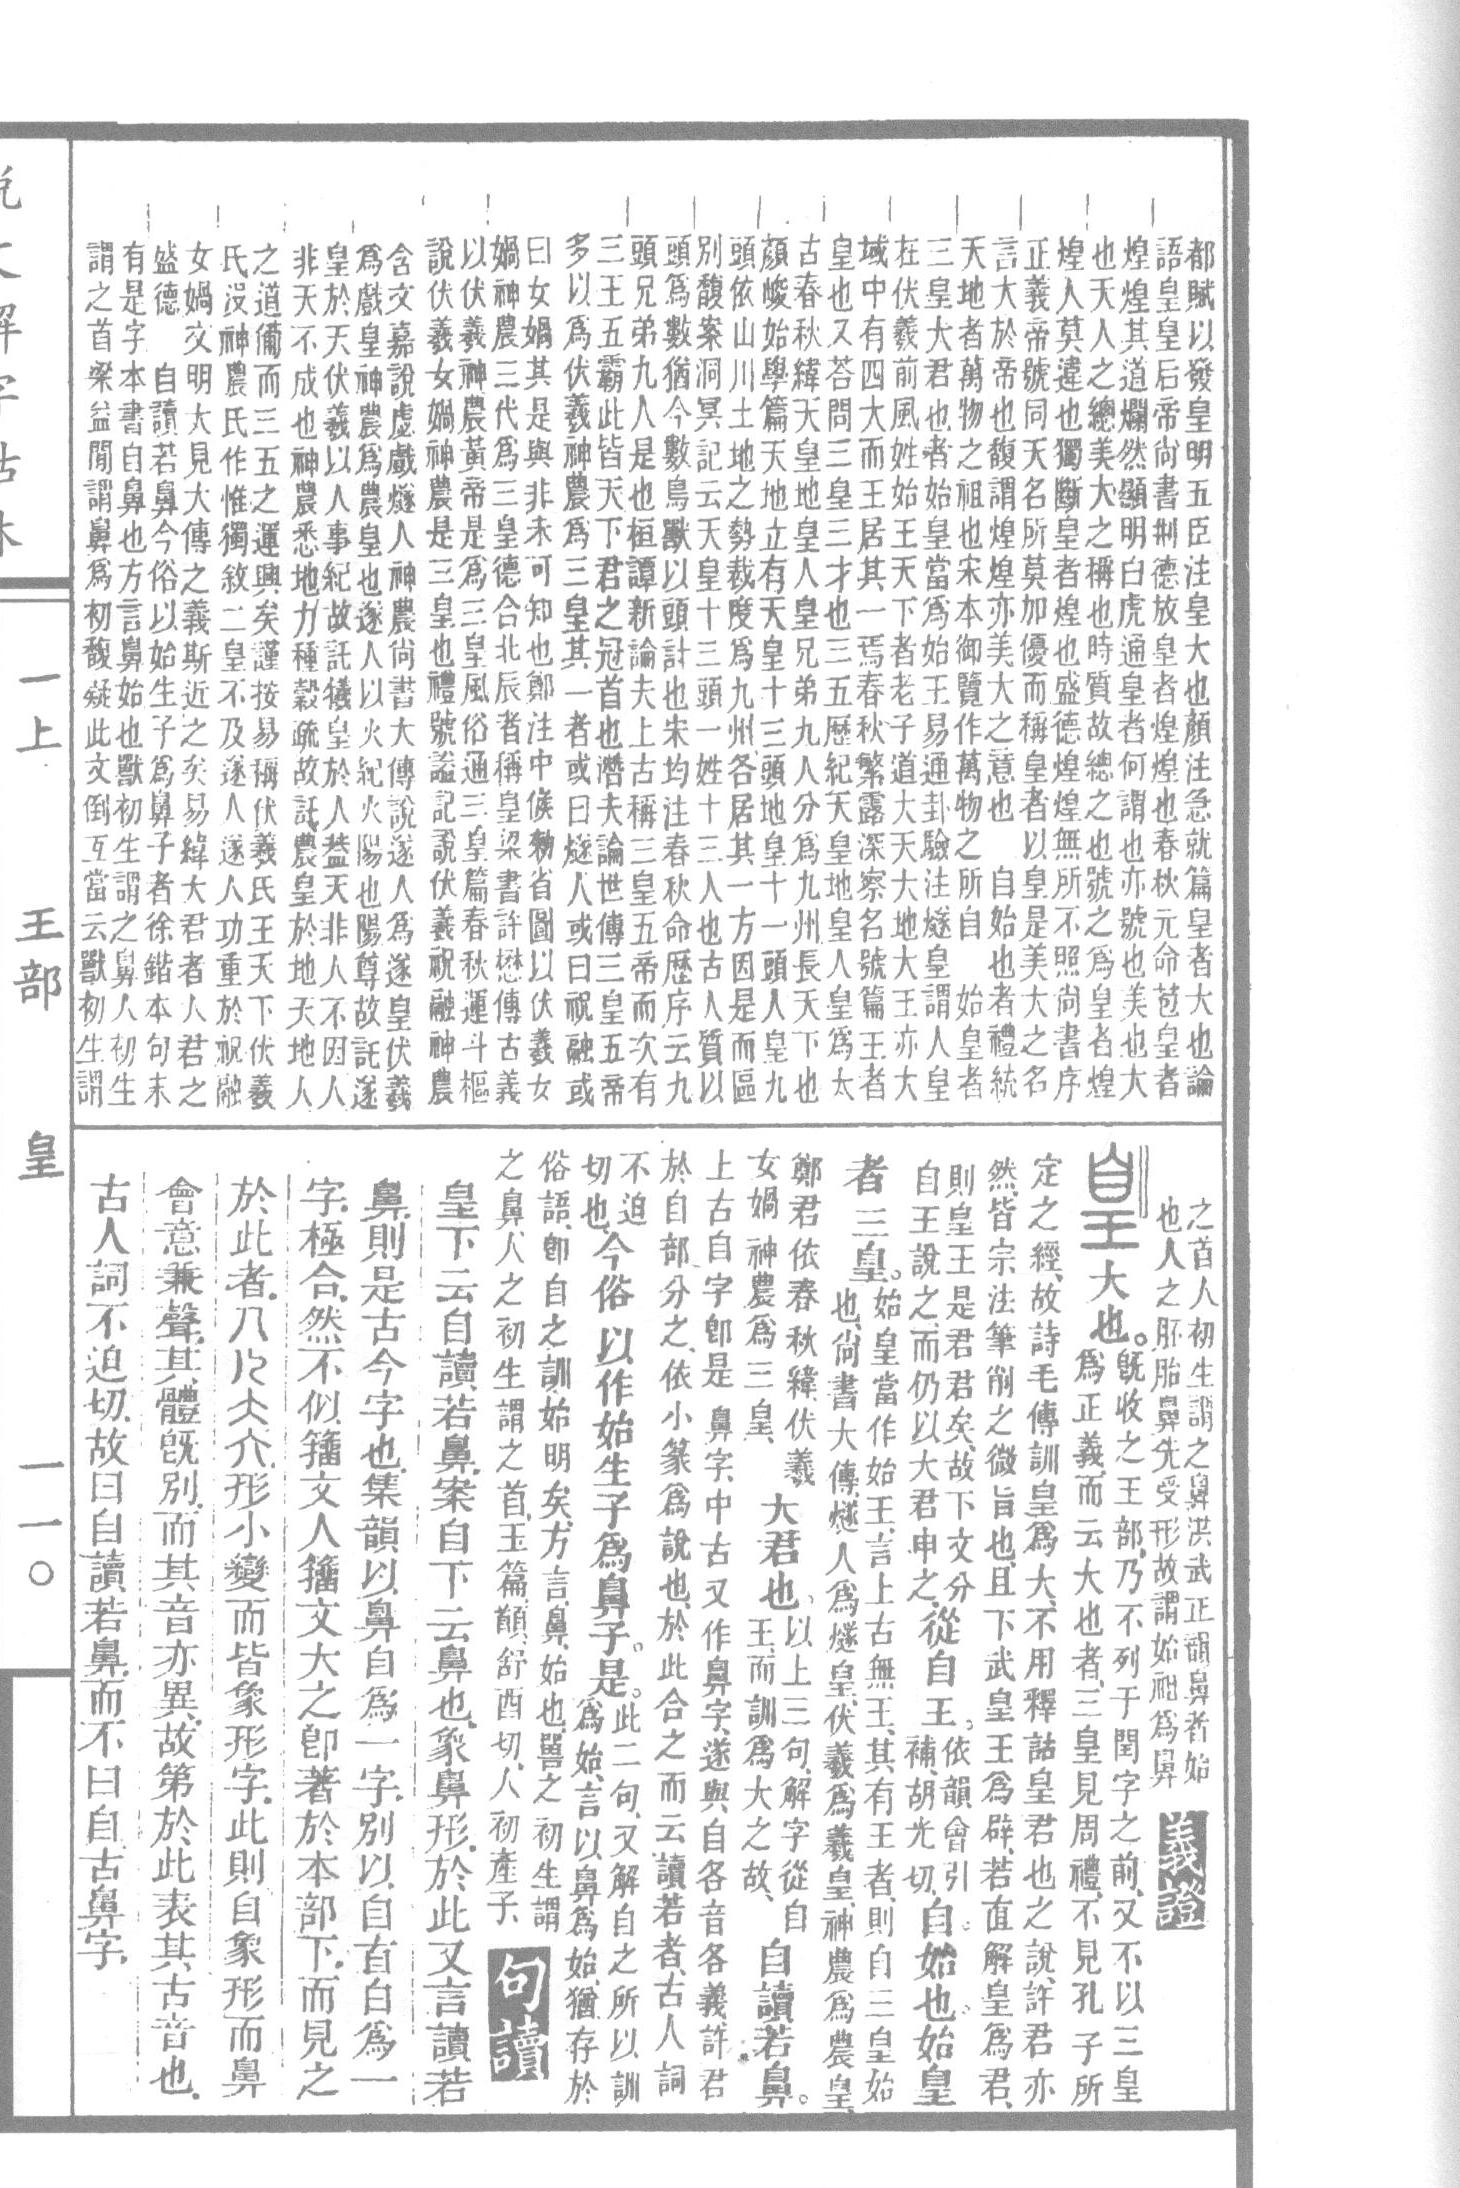 都賦以發皇明五臣注皇大也顏注急就篇皇者大也論
語皇皇后帝尚書刑德放皇者煌煌也春秋元命苞皇者
煌煌其道爛然顯明白虎通皇者何謂也亦號也美也大
也天人之總美大之稱也時質故總之也號之為皇者煌
煌人莫違也獨斷皇者煌也盛德煌煌無所不照尚書序
正義帝號同天名所莫加優而稱皇者以皇是美大之名
言大於帝也馥謂煌煌亦美大之意也　自始也者禮統
天地者萬物之祖也宋本御覽作萬物之所自　始皇者
三皇大君也者始皇當為始王易通卦驗注燧皇謂人皇
在伏羲前風姓始王天下者老子道大天大地大王亦大
域中有四大而王居其一焉春秋繁露深察名號篇王者
皇也又荅問三皇三才也三五歷紀天皇地皇人皇為太
古春秋緯天皇地皇人皇兄弟九人分為九州長天下也
顏峻始學篇天地立有天皇十三頭地皇十一頭人皇九
頭依山川土地之勢裁度為九州各居其一方因是而區
別馥案洞冥記云天皇十三頭一姓十三人也古人質以
頭為數猶今數鳥獸以頭計也宋均注春秋命歷序云九
頭兄弟九人是也桓譚新論夫上古稱三皇五帝而次有
三王五霸此皆天下君之冠首也潛夫論世傳三皇五帝
多以為伏羲神農為三皇其一者或曰燧人或曰祝融或
曰女媧其是與非未可知也鄭注中候勑省圖以伏羲女
媧神農三代為三皇德合北辰者稱皇梁書許懋傳古義
以伏羲神農黃帝是為三皇風俗通三皇篇春秋運斗樞
說伏羲女媧神農是三皇也禮號謚記說伏羲祝融神農
含文嘉說虙戲燧人神農尚書大傳說遂人為遂皇伏羲
為戲皇神農為農皇也遂人以火紀火陽也陽尊故託遂
皇於天伏羲以人事紀故託犧皇於人葢天非人不因人
非天不成也神農悉地力種穀疏故託農皇於地天地人
之道備而三五之運興矣謹按易稱伏羲氏王天下伏羲
氏沒神農氏作惟獨敘二皇不及遂人遂人功重於祝融
女媧文明大見大傳之義斯近之矣易緯大君者人君之
盛德　自讀若鼻今俗以始生子為鼻子者徐鍇本句末
有是字本書自鼻也方言鼻始也獸初生謂之鼻人初生
謂之首梁益閒謂鼻為初馥疑此文倒互當云獸初生謂
之首人初生謂之鼻洪武正韻鼻者始
也人之胚胎鼻先受形故謂始祖為鼻
義證
皇大也。既收之王部、乃不列于閏字之前、又不以三皇
為正義、而云大也者、三皇見周禮、不見孔子所
定之經、故詩毛傳訓皇為大、不用釋詁皇君也之說、許君亦
然、皆宗法筆削之微旨也、且下武皇王為辟、若直解皇為君、
則皇王是君君矣、故下文分
自王說之、而仍以大君申之、
從自王。依韻會引
補、胡光切、
自始也。始皇
者三皇。始皇當作始王、言上古無王、其有王者、則自三皇始
也、尚書大傳、燧人為燧皇、伏羲為羲皇、神農為農皇、
鄭君依春秋緯、伏羲
女媧神農為三皇、
大君也。以上三句、解字從自
王、而訓為大之故、
自讀若鼻。
上古自字卽是鼻字、中古又作鼻字、遂與自各音各義、許君
於自部分之、依小篆為說也、於此合之而云讀若者、古人詞
不迫
切也、
今俗以作始生子為鼻子。是。此二句、又解自之所以訓
為始、言以鼻為始、猶存於
俗語、卽自之訓始明矣、方言、鼻、始也、獸之初生謂
之鼻、人之初生謂之首、玉篇、䪿、舒酉切、人初產子、
句讀
皇下云自讀若鼻、案自下云鼻也、象鼻形、於此又言讀若
鼻、則是古今字也、集韻以鼻自為一字、別以自𦣹白為一
字、極合、然不似籀文人籀文大之卽著於本部下、而見之
於此者、形小變而皆象形字、此則自象形而鼻
會意兼聲、其體旣別、而其音亦異、故第於此表其古音也、
古人詞不迫切、故曰自讀若鼻、而不曰自、古鼻字、
說文解字詁林
一上　王部　皇　一一〇